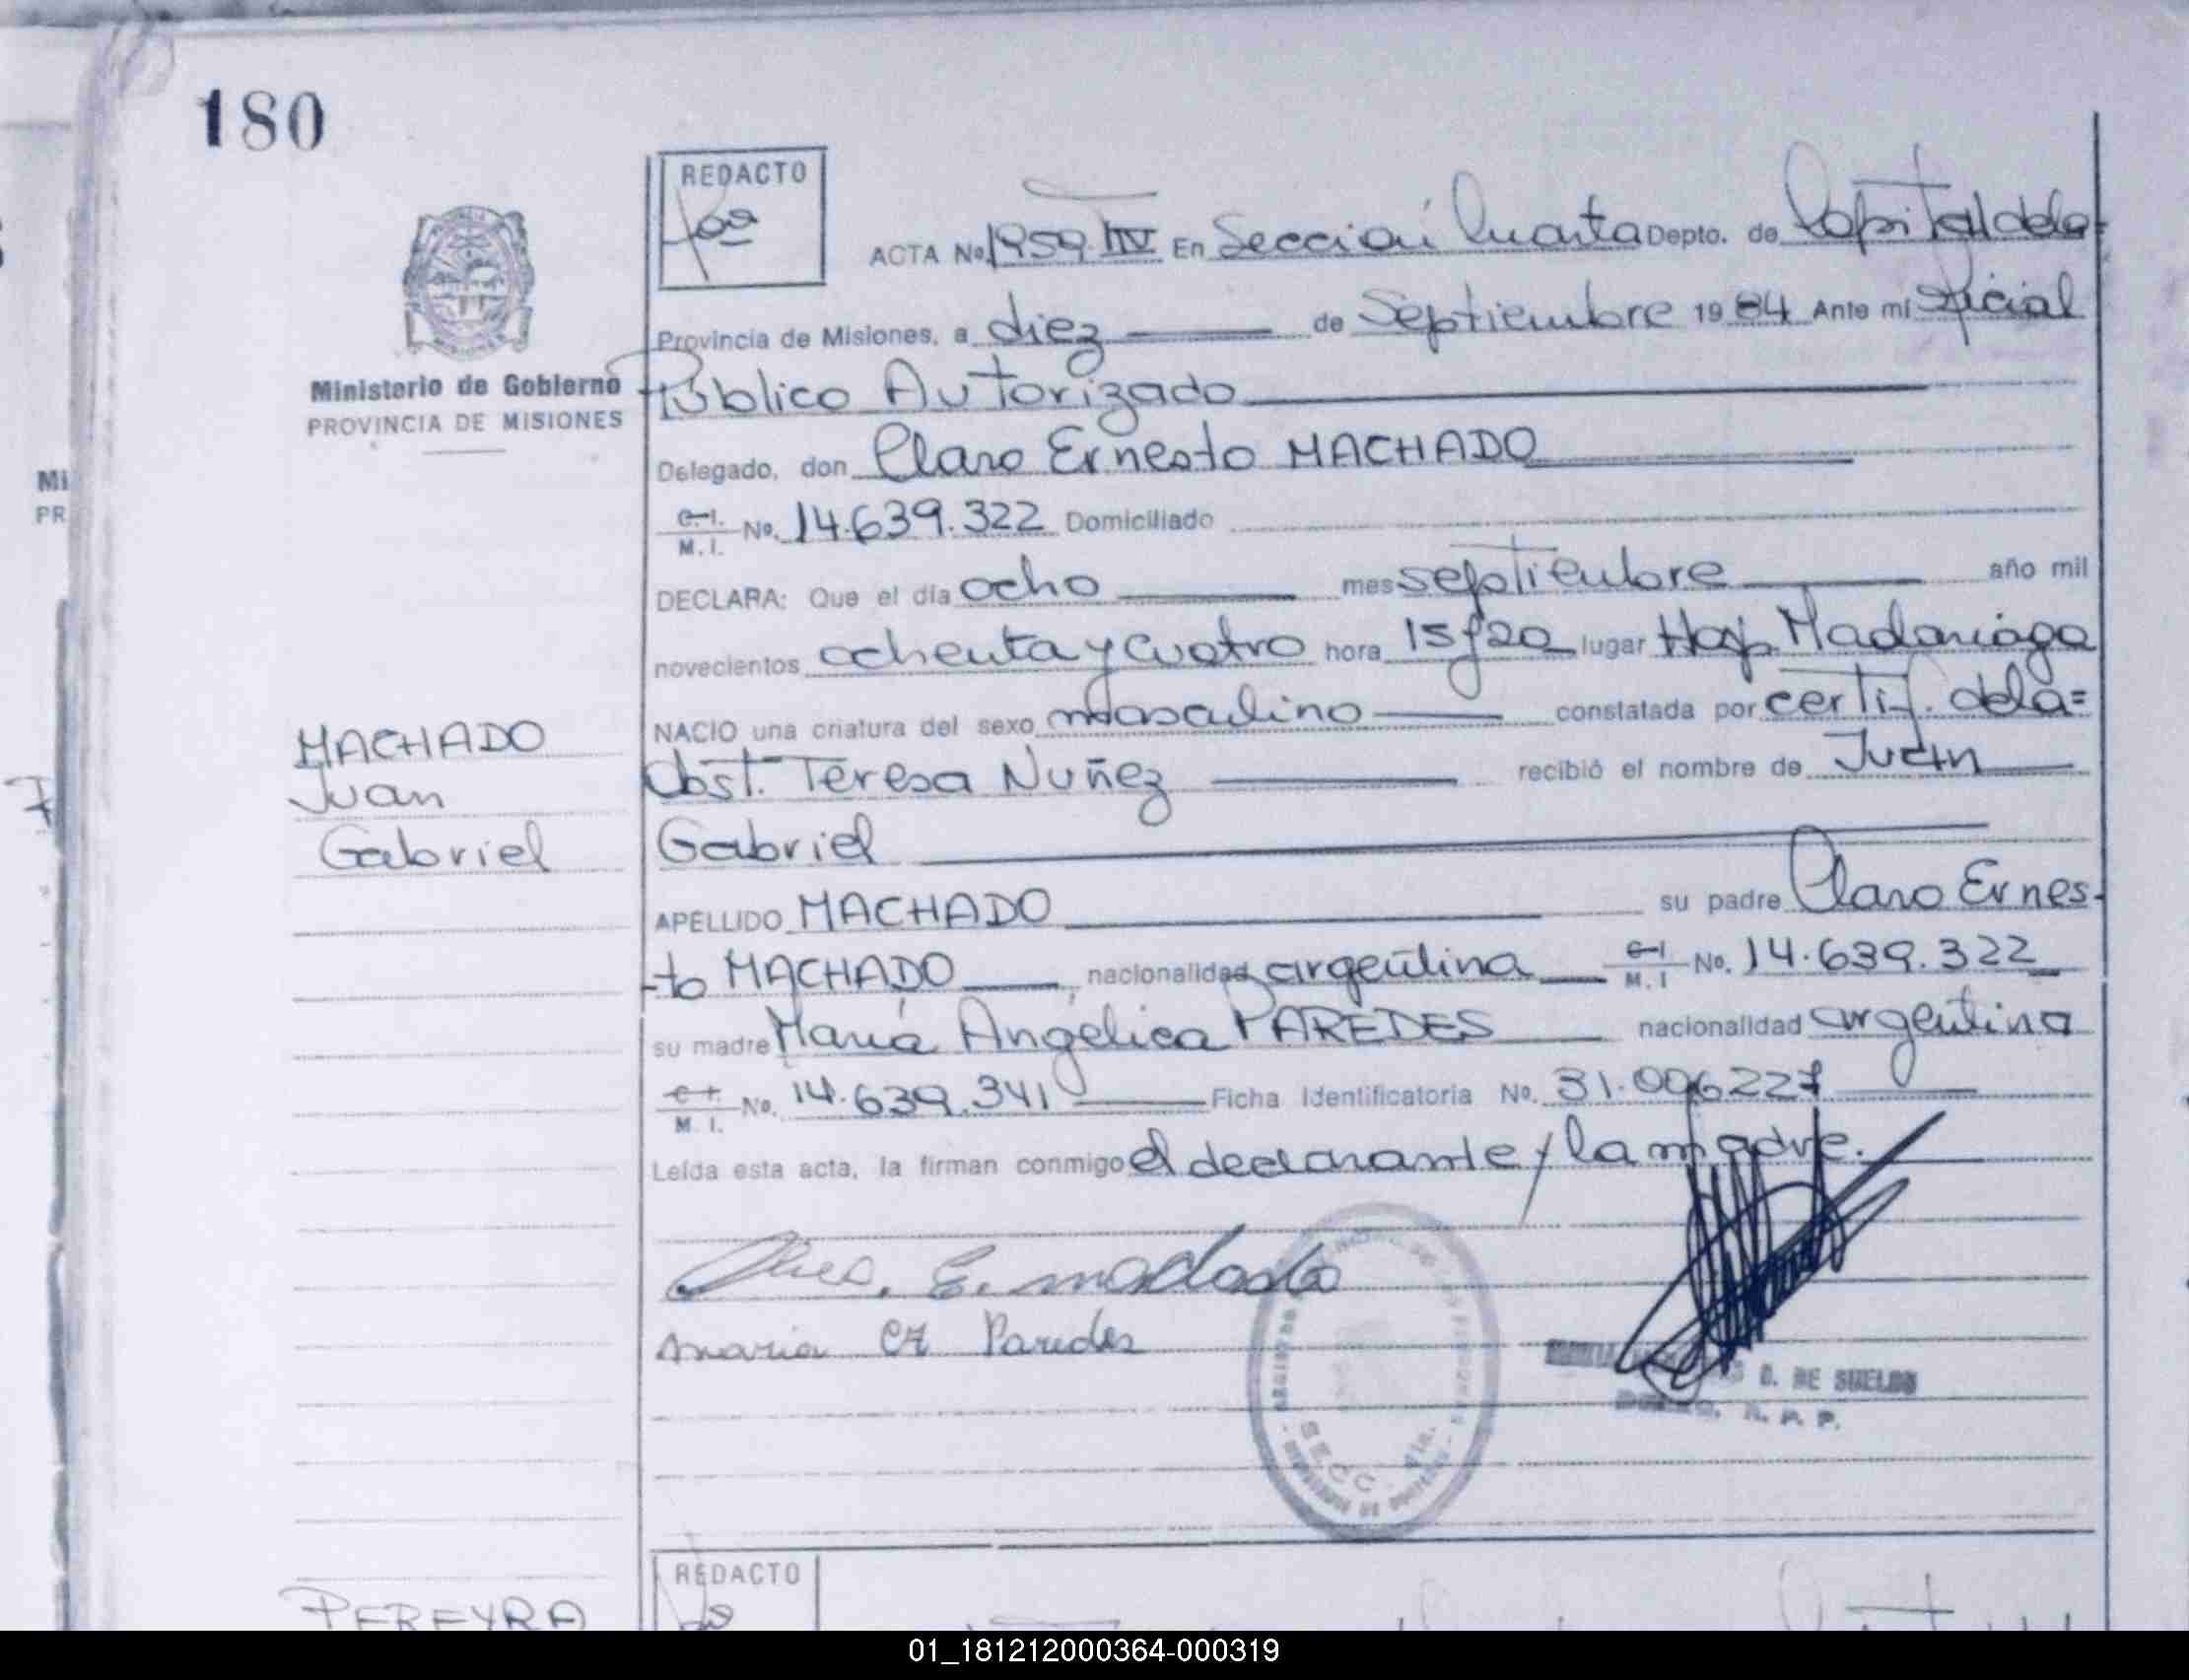 180
REDACTO
ACTA No. 1959-IV En Sección Cuarta Depto. de Capital de la
Provincia de Misiones, a diez de Septiembre 1984 Ante mi Oficial
Público Autorizado
Ministerio de Gobierno
PROVINCIA DE MISIONES
Delegado, don Claro Ernesto MACHADO
C.I. M.I. No. 14.639.322 Domiciliado
DECLARA: Que el día ocho mes septiembre año mil
novecientos ochenta y cuatro hora 15y20 lugar Hosp. Madariaga
NACIO una criatura del sexo masculino constatada por certif. de la=
Obst. Teresa Nuñez recibió el nombre de Juan
Gabriel
MACHADO
Juan
Gabriel
APELLIDO MACHADO su padre Claro Ernes-
-to MACHADO, nacionalidad argentina C.I. M.I No. 14.639.322
su madre María Angélica PAREDES nacionalidad argentina
C.I. M.I. No. 14.639.341 Ficha Identificatoria No. 31.006227
Leída esta acta, la firman conmigo el declarante y la madre.
E. machado
maria Paredes
SECC.
D. DE SUELDO
R. P. P.
REDACTO
PEREYRA
MI
PR
01_181212000364-000319